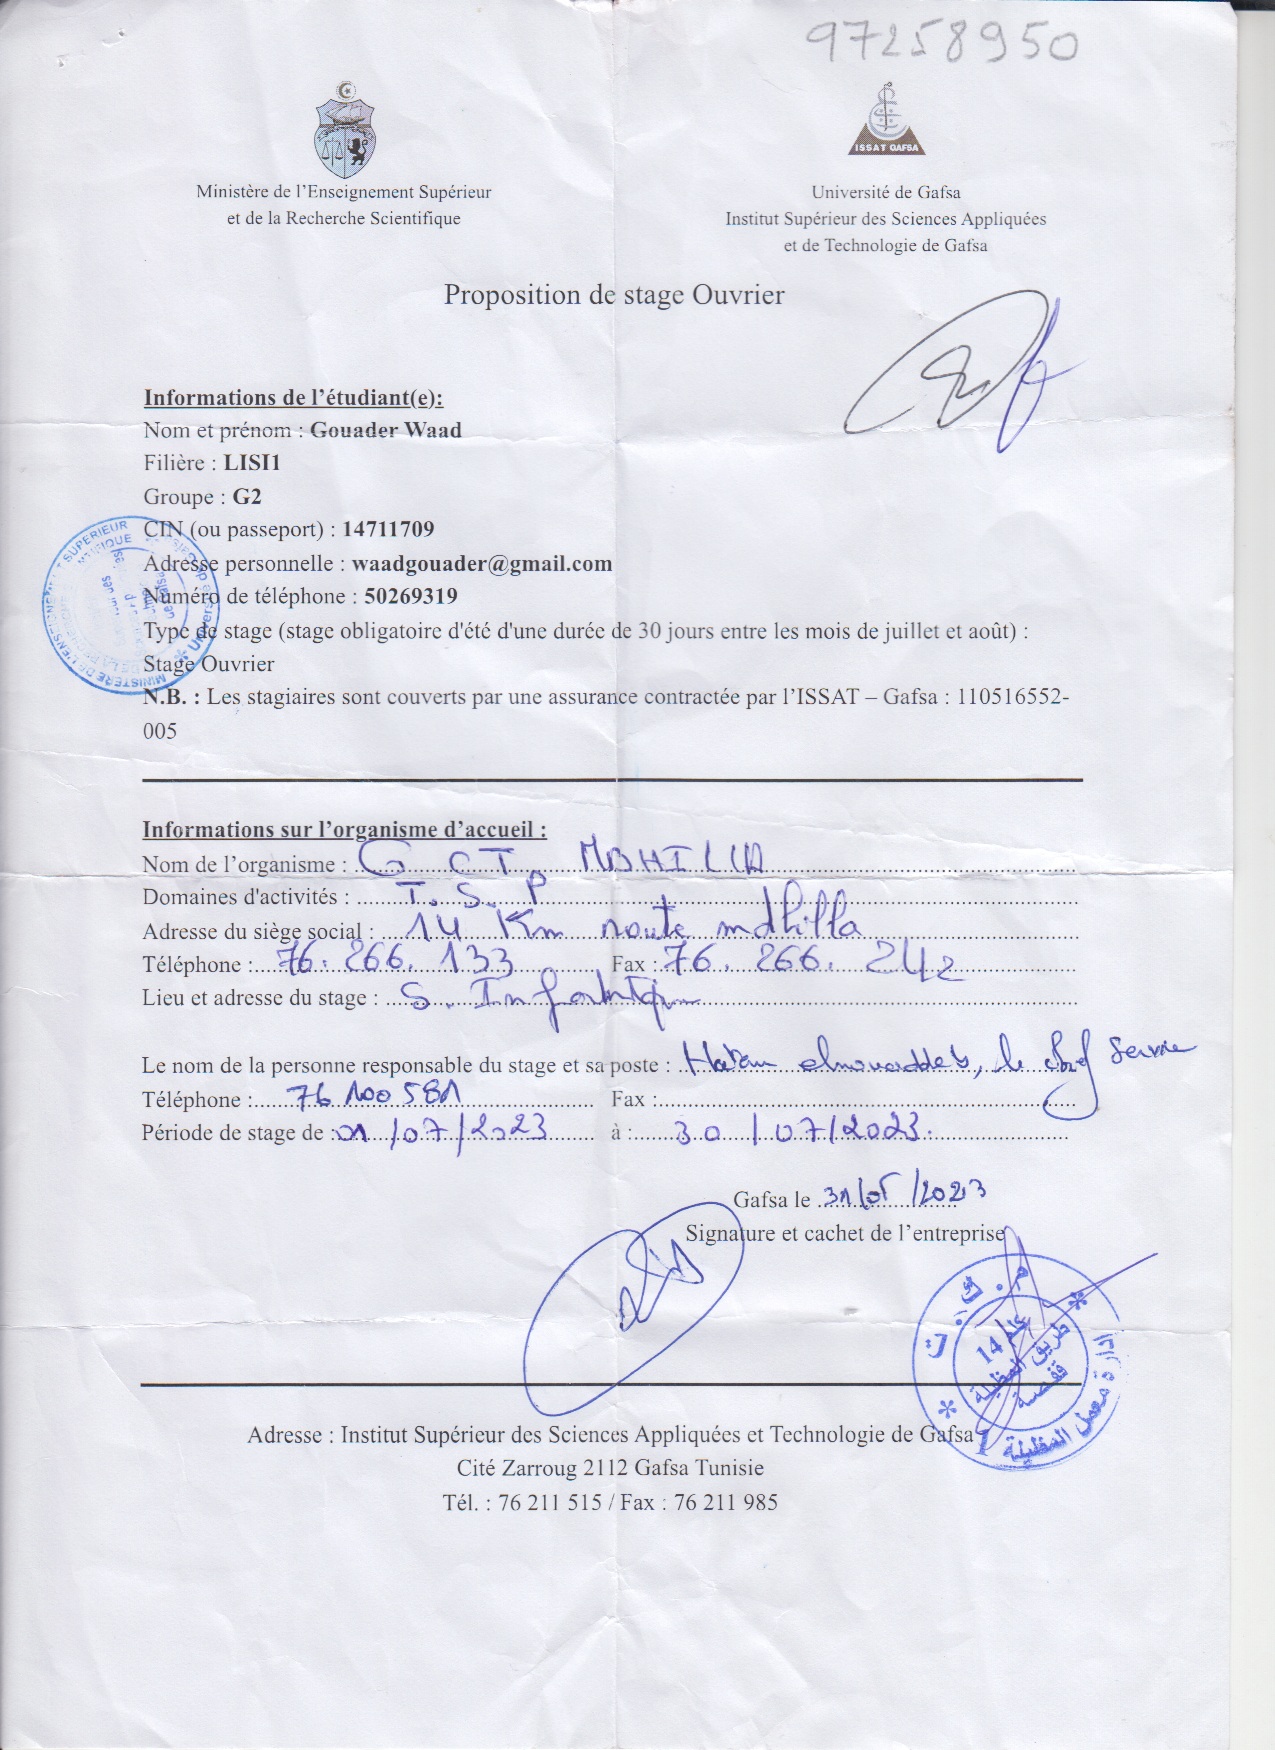 97258950
ISSAT GAFSA
Ministère de l'Enseignement Supérieur
et de la Recherche Scientifique
Université de Gafsa
Institut Supérieur des Sciences Appliquées
et de Technologie de Gafsa
Proposition de stage Ouvrier
Informations de l'étudiant(e):
Nom et prénom : Gouader Waad
Filière : LISI1
Groupe : G2
CIN (ou passeport) : 14711709
Adresse personnelle : waadgouader@gmail.com
Numéro de téléphone : 50269319
Type de stage (stage obligatoire d'été d'une durée de 30 jours entre les mois de juillet et août) :
Stage Ouvrier
N.B. : Les stagiaires sont couverts par une assurance contractée par l'ISSAT – Gafsa : 110516552-
005
Informations sur l'organisme d'accueil :
Nom de l'organisme : G CT MDHILLA
Domaines d'activités : T.S.P
Adresse du siège social : 14 Km route mdhilla
Téléphone : 76.266.133 Fax : 76.266.242
Lieu et adresse du stage : S. Informatique
Le nom de la personne responsable du stage et sa poste : Hatem le chef Service
Téléphone : 76 100 581 Fax :
Période de stage de : 01/07/2023 à : 30/07/2023.
Gafsa le 31/05/2023
Signature et cachet de l'entreprise
م.ك.ت
علم 14
طريق المظيلة
قفصة
إدارة معمل المظيلة 1
Adresse : Institut Supérieur des Sciences Appliquées et Technologie de Gafsa
Cité Zarroug 2112 Gafsa Tunisie
Tél. : 76 211 515 / Fax : 76 211 985